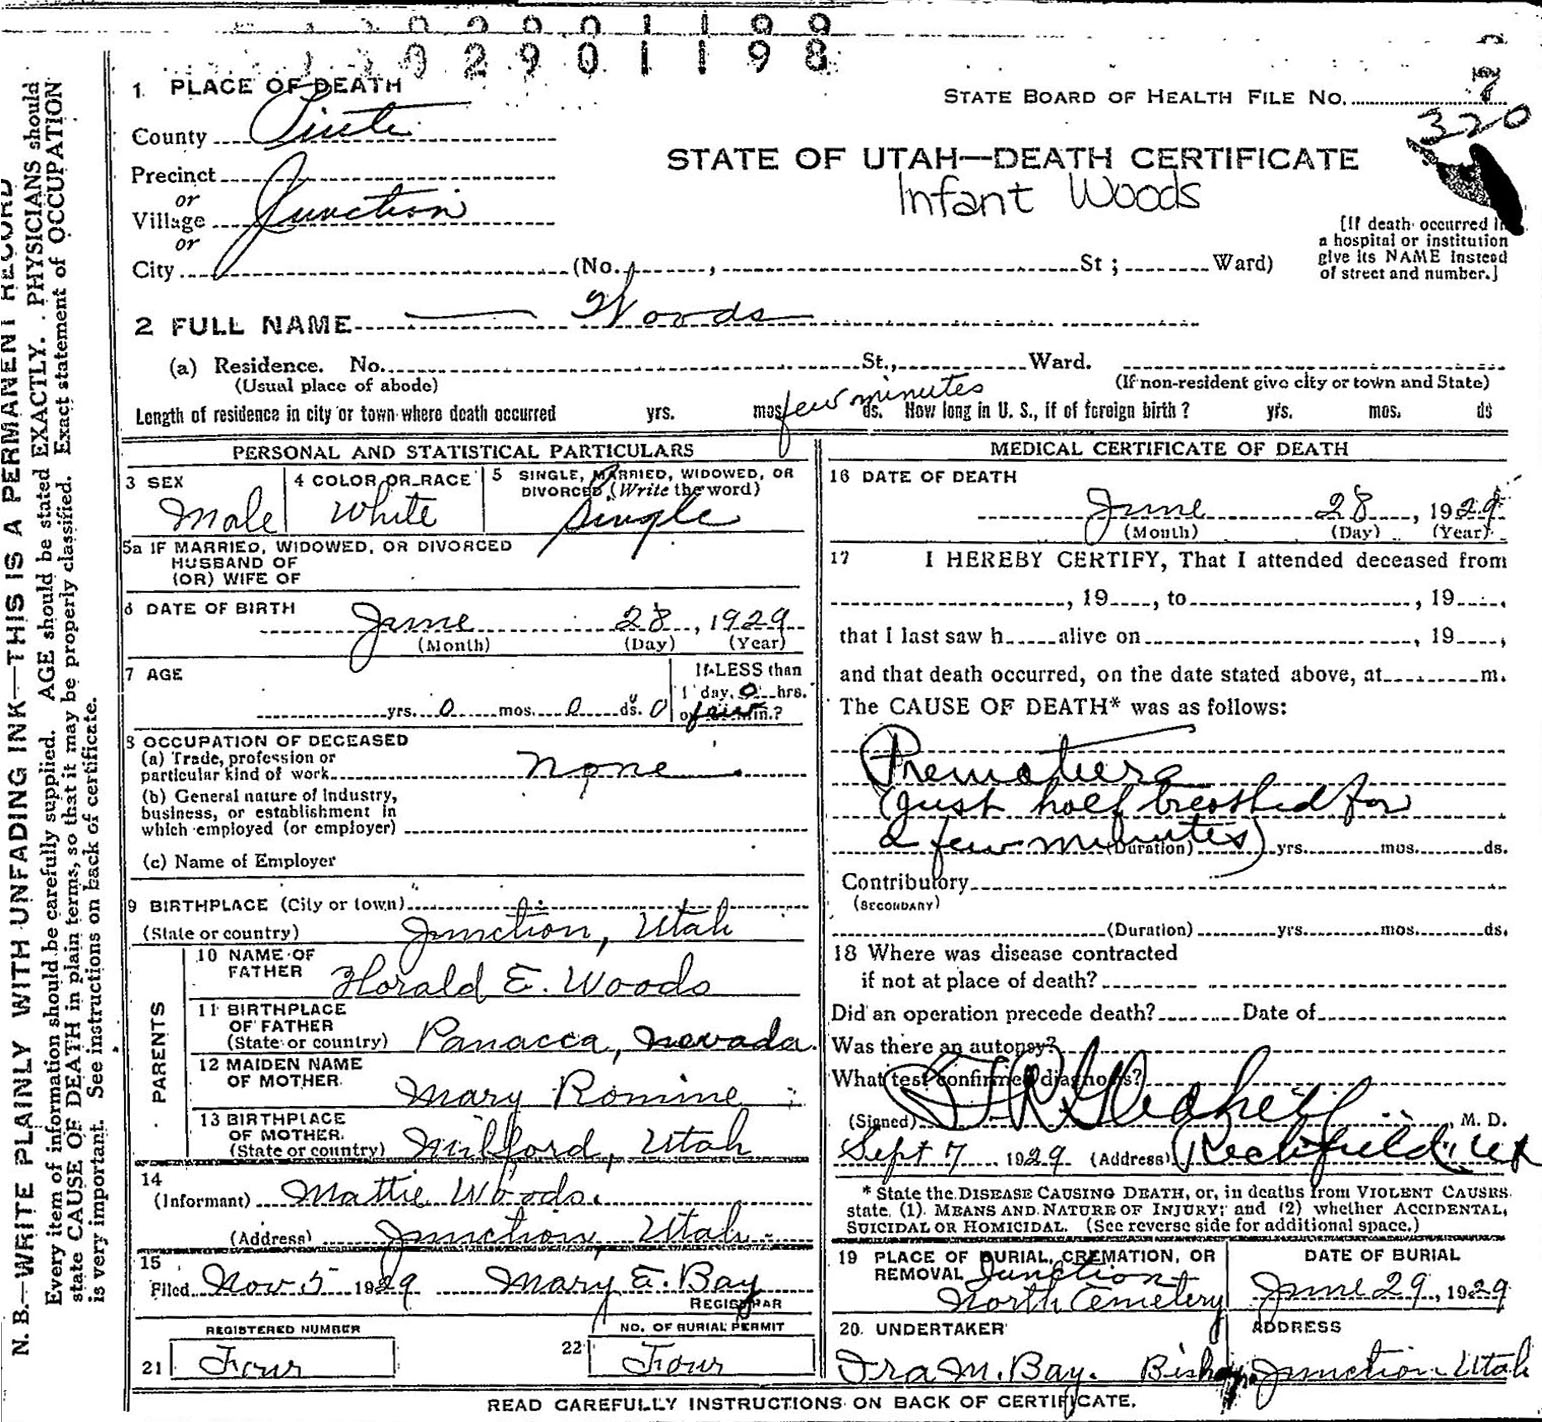 02901198
1 PLACE OF DEATH
STATE BOARD OF HEALTH FILE NO. 7
320
County Piute
STATE OF UTAH—DEATH CERTIFICATE
Infant Woods
Precinct
or
Village Junction
or
City (No. , St ; Ward)
[If death occurred in
a hospital or institution
give its NAME instead
of street and number.]
2 FULL NAME —— Woods
(a) Residence. No. St., Ward.
(Usual place of abode)
(If non-resident give city or town and State)
Length of residence in city or town where death occurred yrs. mos. few minutes ds. How long in U. S., if of foreign birth ? yrs. mos. ds
PERSONAL AND STATISTICAL PARTICULARS
3 SEX
Male
4 COLOR OR RACE
White
5 SINGLE, MARRIED, WIDOWED, OR
DIVORCED (Write the word)
Single
5a IF MARRIED, WIDOWED, OR DIVORCED
HUSBAND OF
(OR) WIFE OF
6 DATE OF BIRTH
June 28, 1929
(Month) (Day) (Year)
7 AGE
yrs. 0 mos. 0 ds. 0
If LESS than
1 day, 0 hrs.
or few min.?
8 OCCUPATION OF DECEASED
(a) Trade, profession or
particular kind of work none
(b) General nature of Industry,
business, or establishment in
which employed (or employer)
(c) Name of Employer
9 BIRTHPLACE (City or town)
(State or country) Junction, Utah
PARENTS
10 NAME OF
FATHER Horald E. Woods
11 BIRTHPLACE
OF FATHER
(State or country) Panacca, Nevada
12 MAIDEN NAME
OF MOTHER Mary Romine
13 BIRTHPLACE
OF MOTHER
(State or country) Milford, Utah
14
(Informant) Mattie Woods.
(Address) Junction, Utah
15
Filed Nov 5 1929 Mary E. Bay
REGISTRAR
REGISTERED NUMBER
21 Four
NO. OF BURIAL PERMIT
22 Four
MEDICAL CERTIFICATE OF DEATH
16 DATE OF DEATH
June 28, 1929
(Month) (Day) (Year)
17 I HEREBY CERTIFY, That I attended deceased from
, 19 , to , 19 ,
that I last saw h alive on , 19 ,
and that death occurred, on the date stated above, at m.
The CAUSE OF DEATH* was as follows:
Premature
(just half breathed for
a few minutes)
(Duration) yrs. mos. ds.
Contributory
(SECONDARY)
(Duration) yrs. mos. ds.
18 Where was disease contracted
if not at place of death?
Did an operation precede death? Date of
Was there an autopsy?
What test confirmed diagnosis?
(Signed) M. D.
Sept 7 1929 (Address) Richfield, Ut
* State the DISEASE CAUSING DEATH, or, in deaths from VIOLENT CAUSES
state, (1) MEANS AND NATURE OF INJURY; and (2) whether ACCIDENTAL,
SUICIDAL OR HOMICIDAL. (See reverse side for additional space.)
19 PLACE OF BURIAL, CREMATION, OR
REMOVAL Junction
North Cemetery
DATE OF BURIAL
June 29, 1929
20. UNDERTAKER
Ira M. Bay. Bishop
ADDRESS
Junction Utah
READ CAREFULLY INSTRUCTIONS ON BACK OF CERTIFICATE.
N. B.—WRITE PLAINLY WITH UNFADING INK—THIS IS A PERMANENT RECORD
Every item of information should be carefully supplied. AGE should be stated EXACTLY. PHYSICIANS should
state CAUSE OF DEATH in plain terms, so that it may be properly classified. Exact statement of OCCUPATION
is very important. See instructions on back of certificate.